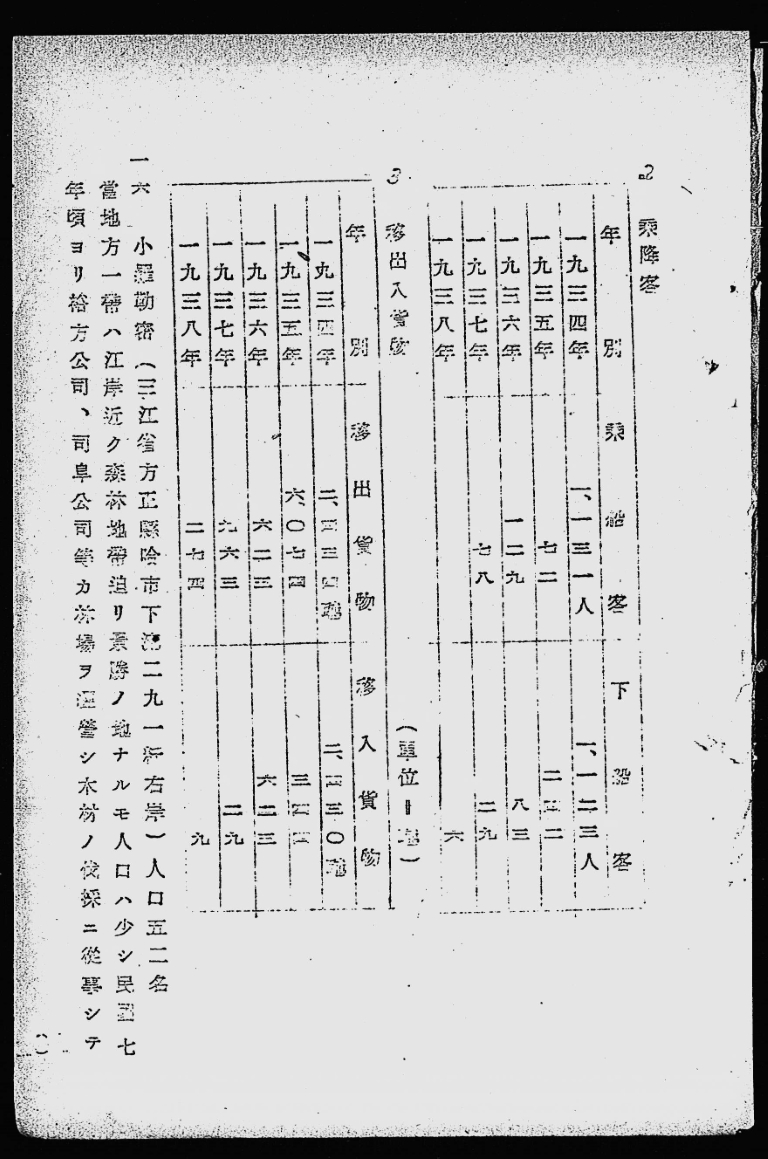 2 乘降客
年別 乘船客 下船客
一九三四年 一、一三一人 一、一二三人
一九三五年 七二 二四二
一九三六年 一二九 八三
一九三七年 七八 二九
一九三八年 六
3 移出入貨物 (單位=瓲)
年別 移出貨物 移入貨物
一九三四年 二、四三四瓲 二、四三〇瓲
一九三五年 六、〇七四 三四四
一九三六年 六二三 六二三
一九三七年 九六三 二九
一九三八年 二七四 九
一六 小羅勒密(三江省方正縣哈市下流二九一粁右岸)人口五二名
當地方一帶ハ江岸近ク森林地帶迫リ景勝ノ地ナルモ人口ハ少シ民國七
年頃ヨリ裕方公司、司阜公司等カ林場ヲ經營シ木材ノ伐採ニ從事シテ